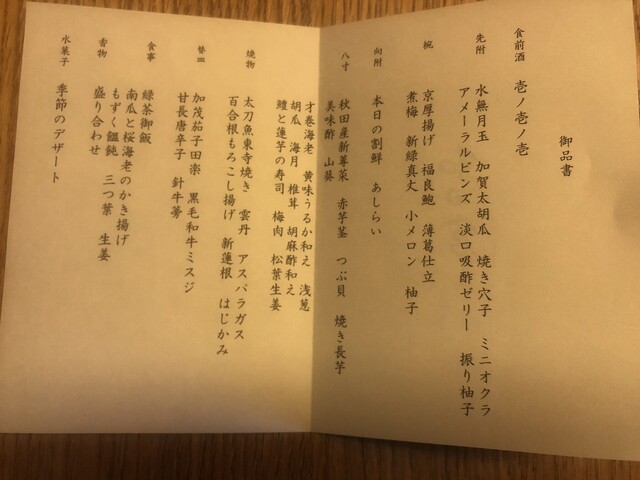 御品書
食前酒 壱ノ壱ノ壱
先附 水無月玉 加賀太胡瓜 焼き穴子 ミニオクラ
アメーラルビンズ 淡口吸酢ゼリー 振り柚子
椀 京厚揚げ 福良鮑 薄葛仕立
煮梅 新緑真丈 小メロン 柚子
向附 本日の割鮮 あしらい
八寸 秋田産新蓴菜 赤芋茎 つぶ貝 焼き長芋
美味酢 山葵
才巻海老 黄味うるか和え 浅葱
胡瓜 海月 椎茸 胡麻酢和え
鱧と蓮芋の寿司 梅肉 松葉生姜
焼物 太刀魚東寺焼き 雲丹 アスパラガス
百合根もろこし揚げ 新蓮根 はじかみ
替皿 加茂茄子田楽 黒毛和牛ミスジ
甘長唐辛子 針牛蒡
食事 緑茶御飯
南瓜と桜海老のかき揚げ
もずく饂飩 三つ葉 生姜
香物 盛り合わせ
水菓子 季節のデザート